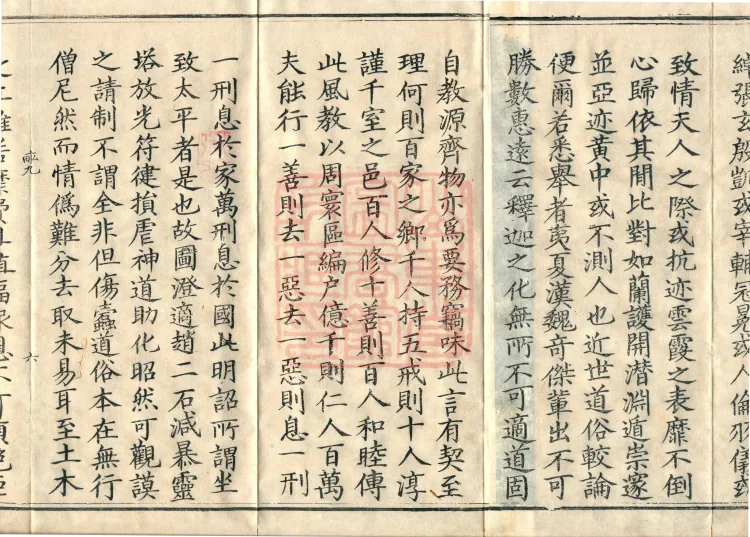 綽張玄殷顗或宰輔冠冕或人倫羽儀或
致情天人之際或抗迹雲霞之表靡不倒
心歸依其間比對如蘭護開潜淵道崇邃
並亞迹黄中或不測人也近世道俗較論
便爾若悉舉者夷夏漢魏奇傑輩出不可
勝數惠遠云釋迦之化無所不可適道固
自教源齊物亦爲要務竊味此言有契至
理何則百家之鄉千人持五戒則十人淳
謹千室之邑百人修十善則百人和睦傳
此風教以周寰區編户億千則仁人百萬
夫能行一善則去一惡去一惡則息一刑
一刑息於家萬刑息於國此明詔所謂坐
致太平者是也故圖澄適趙二石減暴靈
塔放光符健損虐神道助化昭然可觀謨
之請制不謂全非但傷蠹道俗本在無行
僧尼然而情僞難分去取未易耳至土木
九 六